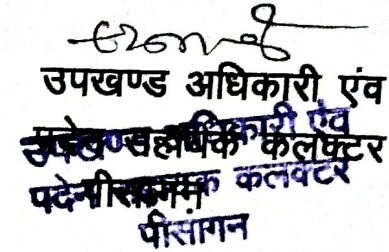 उपखण्ड अधिकारी एंव
पदेन सहायक कलक्टर
पीसांगन
उपखण्ड अधिकारी एंव
पदेन सहायक कलक्टर
पीसांगन